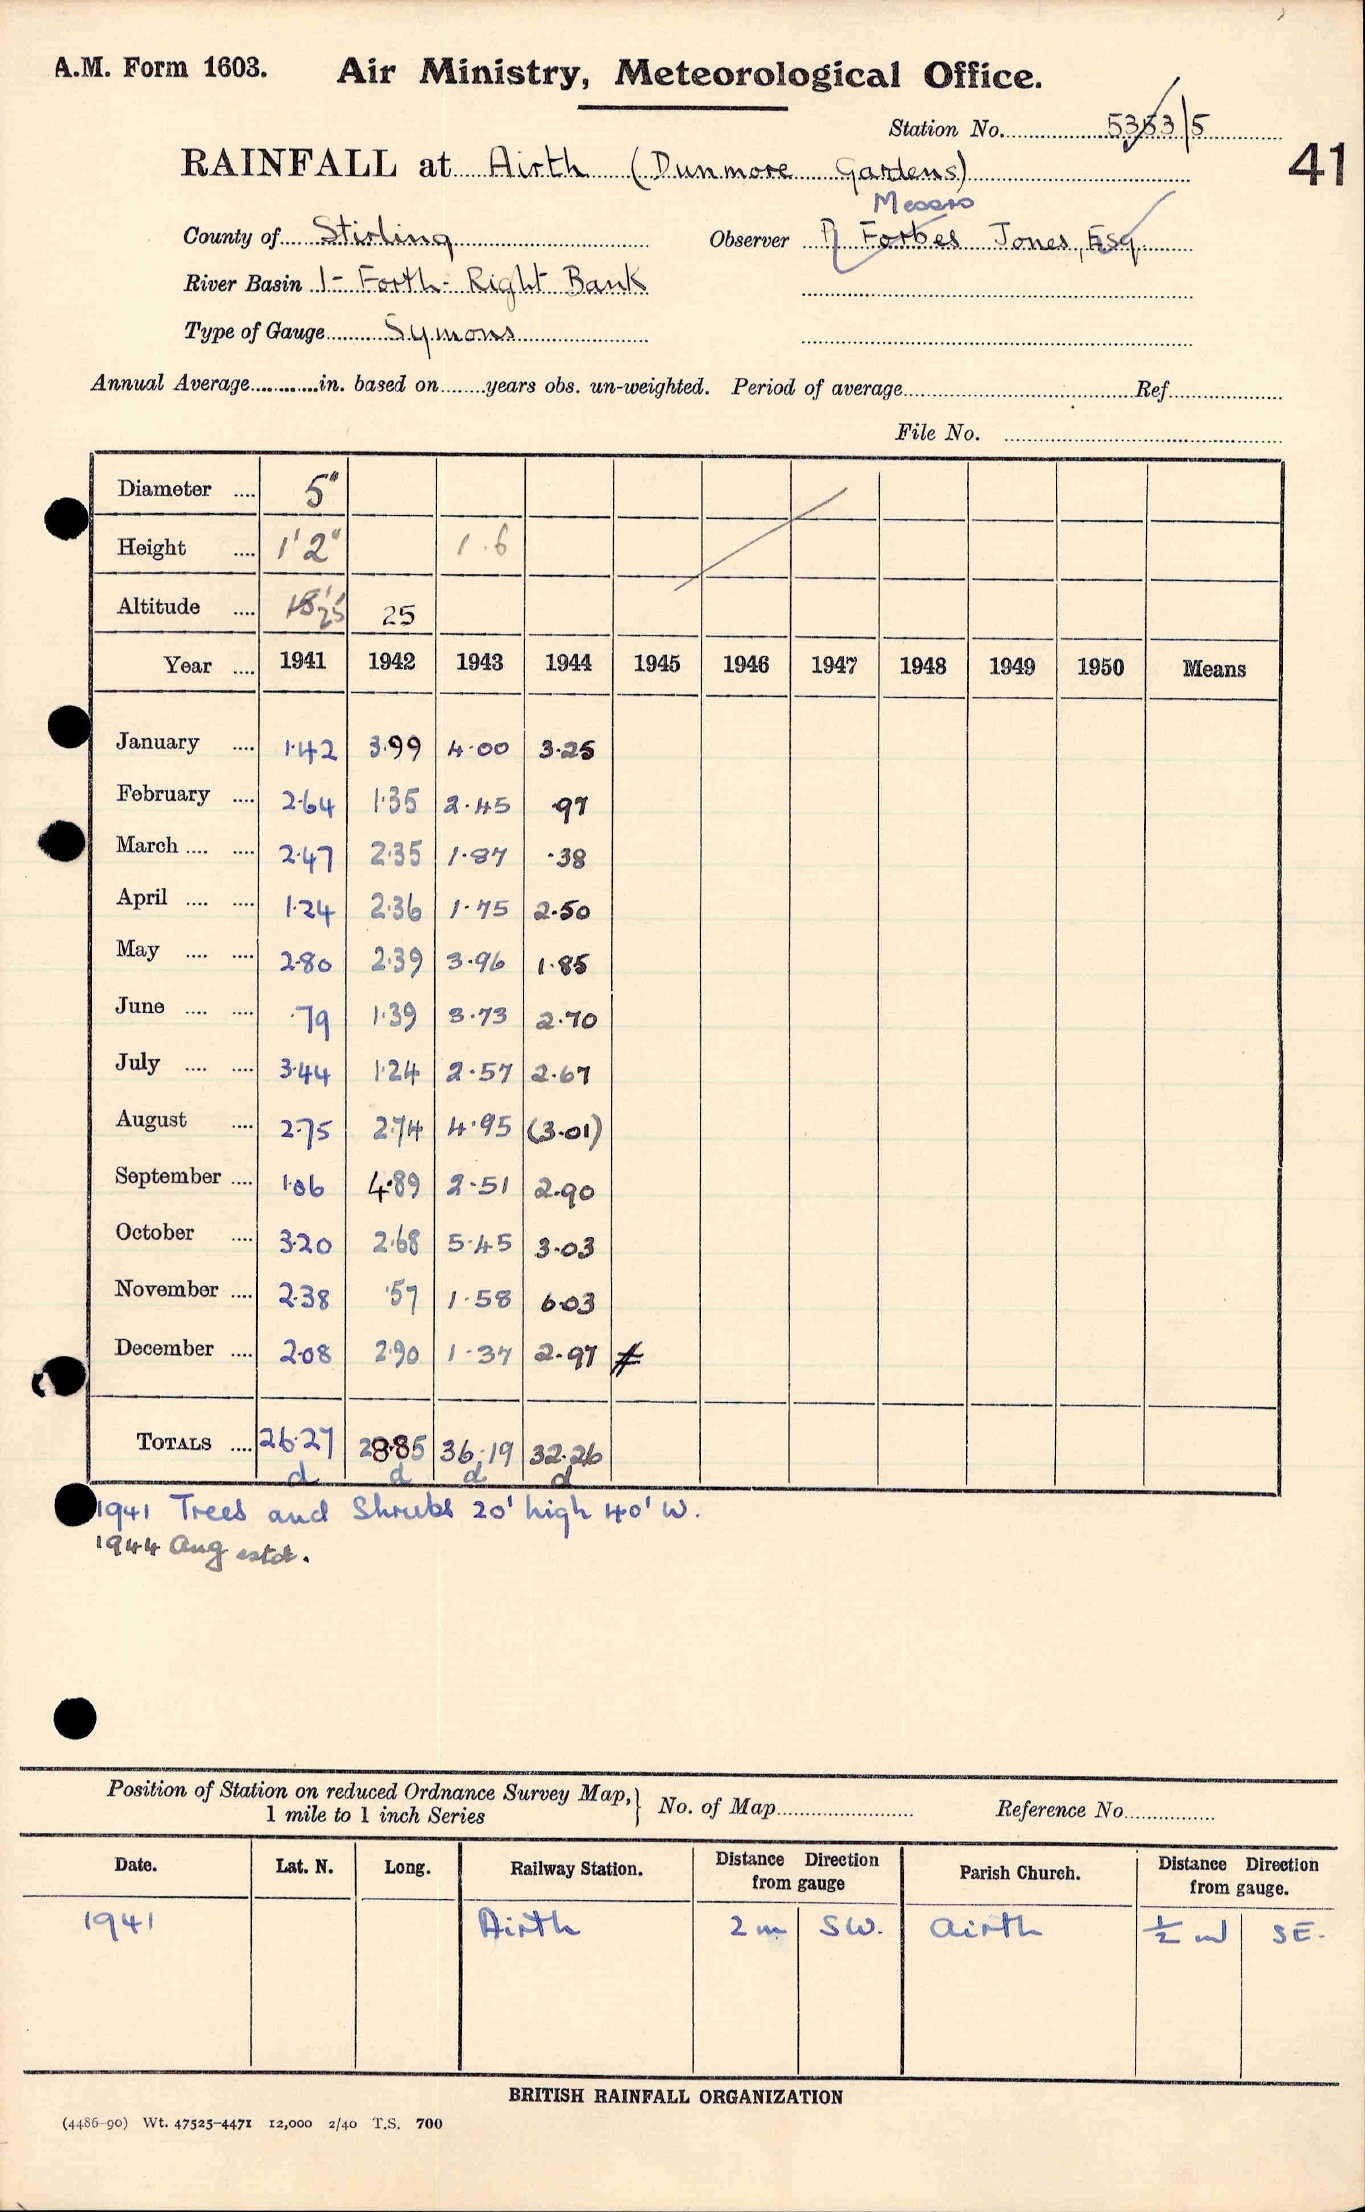 A.M. Form 1603. Air Ministry, Meteorological Office.
Station No. 5353/5
41
RAINFALL at Airth (Dunmore Gardens)
Messrs
County of Stirling Observer R Forbes Jones, Esq.
River Basin 1- Forth- Right Bank
Type of Gauge Symons
Annual Average............in. based on........years obs. un-weighted. Period of average........Ref........
File No.
Diameter .... 5"
Height .... 1'2" 1.6
Altitude .... 18' 25' 25
Year .... 1941 1942 1943 1944 1945 1946 1947 1948 1949 1950 Means
January .... 1.42 3.99 4.00 3.25
February .... 2.64 1.35 2.45 .97
March .... .... 2.47 2.35 1.87 .38
April .... .... 1.24 2.36 1.75 2.50
May .... .... 2.80 2.39 3.96 1.85
June .... .... .79 1.39 3.73 2.70
July .... .... 3.44 1.24 2.57 2.67
August .... 2.75 2.74 4.95 (3.01)
September .... 1.06 4.89 2.51 2.90
October .... 3.20 2.68 5.45 3.03
November .... 2.38 .57 1.58 6.03
December .... 2.08 2.90 1.37 2.97 #
TOTALS .... 26.27 28.85 36.19 32.26
d d d d
1941 Trees and Shrubs 20' high 40' W.
1944 Aug estd.
Position of Station on reduced Ordnance Survey Map, } No. of Map........ Reference No........
1 mile to 1 inch Series
Date. Lat. N. Long. Railway Station. Distance Direction from gauge Parish Church. Distance Direction from gauge.
1941 Airth 2 m SW. Airth ½ m SE.
BRITISH RAINFALL ORGANIZATION
(4486-90) Wt. 47525-4471 12,000 2/40 T.S. 700